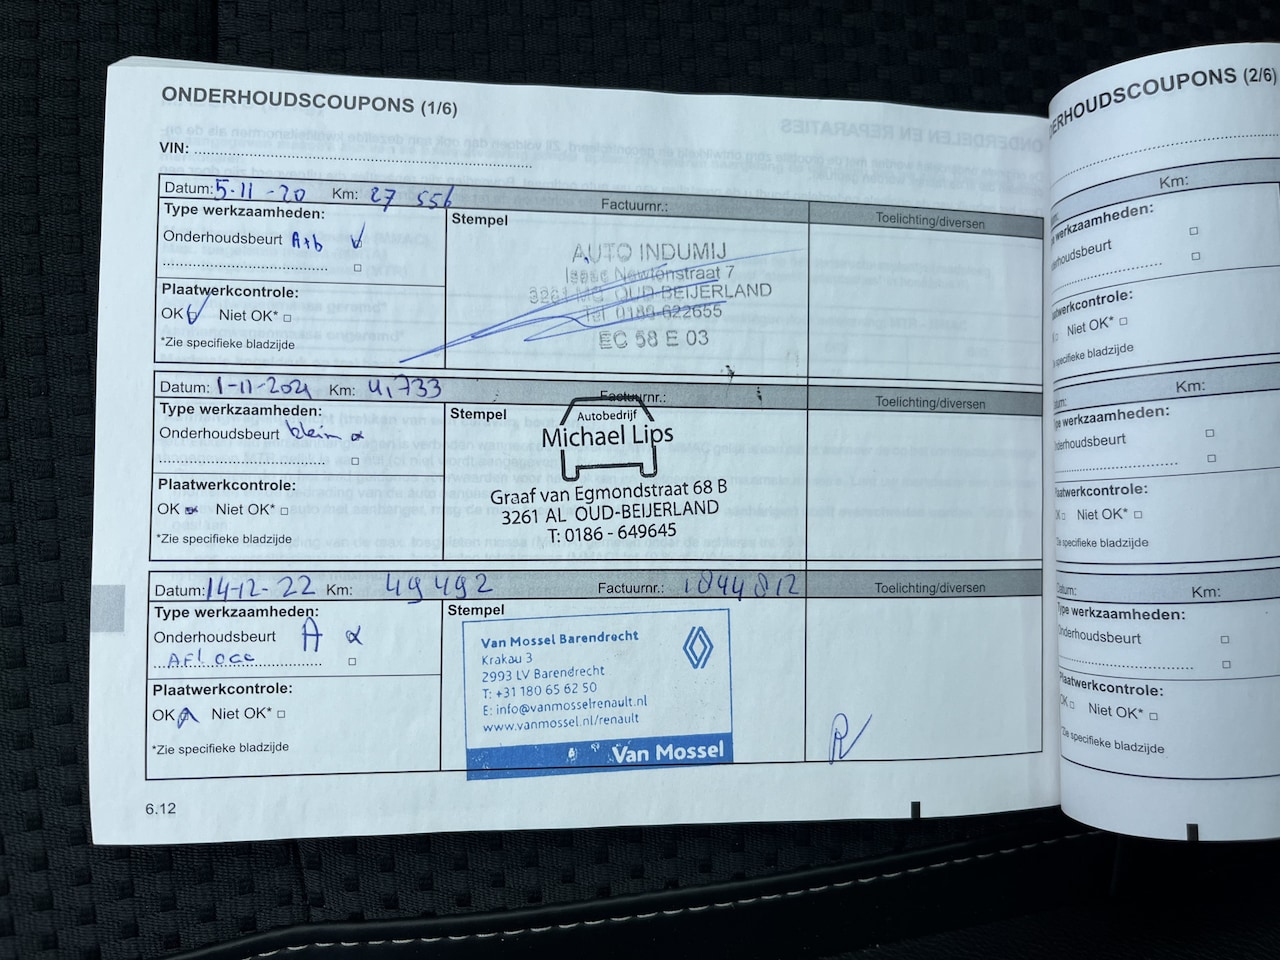 ONDERHOUDSCOUPONS (1/6)
VIN:
Datum: 5-11-20 Km: 27 556 Factuurnr.: Toelichting/diversen
Type werkzaamheden: Stempel
Onderhoudsbeurt A+b
Plaatwerkcontrole:
OK Niet OK* □
*Zie specifieke bladzijde
AUTO INDUMIJ
Isaac Newtonstraat 7
3261 MG OUD-BEIJERLAND
Tel 0186-622655
EC 58 E 03
Datum: 1-11-2021 Km: 41,733 Factuurnr.: Toelichting/diversen
Type werkzaamheden: Stempel
Onderhoudsbeurt klein
Plaatwerkcontrole:
OK Niet OK* □
*Zie specifieke bladzijde
Autobedrijf
Michael Lips
Graaf van Egmondstraat 68 B
3261 AL OUD-BEIJERLAND
T: 0186 - 649645
Datum: 14-12-22 Km: 49492 Factuurnr.: 1844812 Toelichting/diversen
Type werkzaamheden: Stempel
Onderhoudsbeurt A
Plaatwerkcontrole:
OK Niet OK* □
*Zie specifieke bladzijde
Van Mossel Barendrecht
Krakau 3
2993 LV Barendrecht
T: +31 180 65 62 50
E: info@vanmosselrenault.nl
www.vanmossel.nl/renault
Van Mossel
6.12
DERHOUDSCOUPONS (2/6)
Km:
werkzaamheden:
rhoudsbeurt
aatwerkcontrole:
Niet OK* □
specifieke bladzijde
Km:
pe werkzaamheden:
derhoudsbeurt
laatwerkcontrole:
OK □ Niet OK* □
Zie specifieke bladzijde
Datum: Km:
Type werkzaamheden:
Onderhoudsbeurt
Plaatwerkcontrole:
OK □ Niet OK* □
*Zie specifieke bladzijde